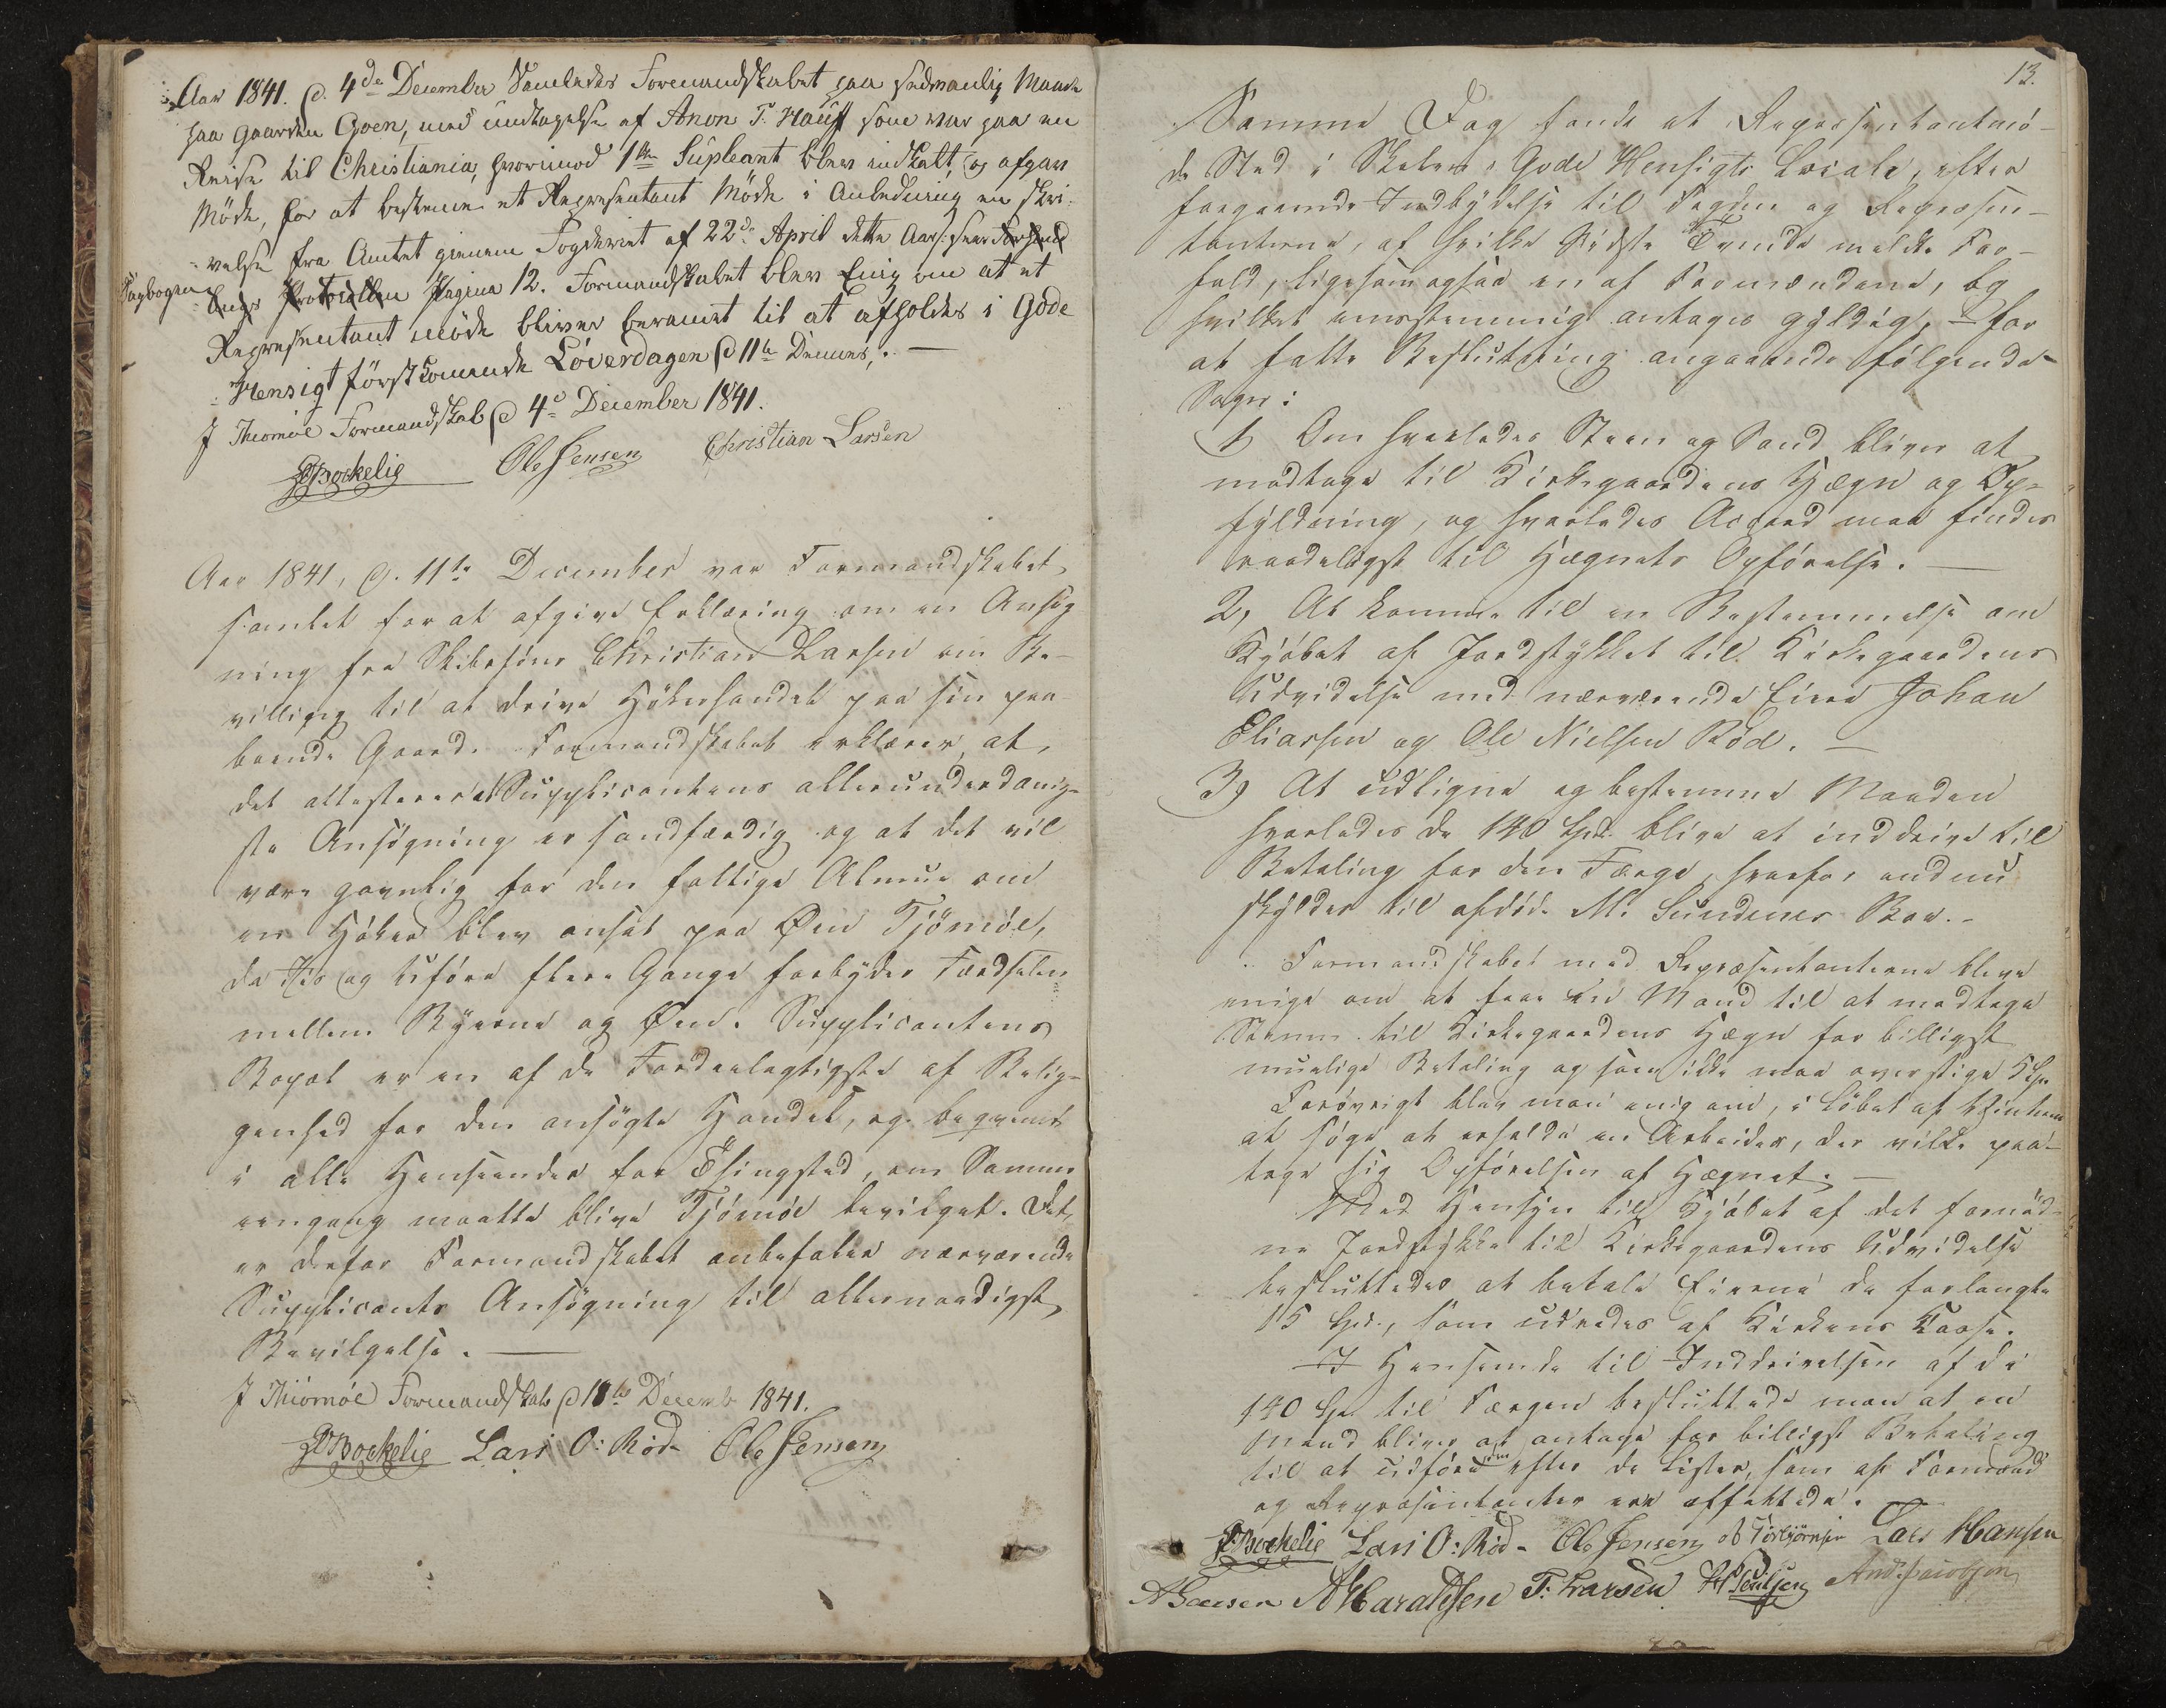 Aar 1841. d. 4de December Samledes Formandskabet paa sædvanlig Maade
paa Gaarden Goen, med undtagelse af Anon T. Hauff som var paa en
Reise til Christiania, hvorimod 1ste Supleant blev indkalt, og afgav
Møde, for at bestemme et Representant Møde i Anledning en skri-
velse fra Amtet gienem Fogderiet af 22de April dette Aar,
Dagbogen Protocollen Pagina 12. Formandskabet blev Enig om at et
Representant møde bliver beramet til at afholdes i Gode
Hensigt først komende Løverdagen d 11te Dennes,. —
J Thiømøe Formandskab d 4de December 1841.
Bockelie Ole Jensen Christian Larsen
Aar 1841, d. 11te December var Formandskabet
samlet for at afgive Erklæring om en Ansøg
ning fra Skibsfører Christian Larsen om Be-
villing til at drive Høkerhandel paa sin paa
boende Gaard. Formandskabet erklærer, at
det attesterer at Supplicantens allerunderdanig-
ste Ansøgning er sandfærdig og at det vil
være gavnlig for den fattige Almue om
en Høker blev ansat paa Øen Tjømöe,
da Iis og Uføre flere Gange forbyder Færdselen
mellem Byerne og Øen. Supplicantens
Bopæl er en af de Fordeelagtigste af Belig-
genhed for den ansøgte Handel, og beqvemt
i alle Henseender for Thingsted, om Samme
eengang maatte blive Tjømöe bevilget. Det
er derfor Formandskabet anbefaler nærværende
Supplicants Ansøgning til allernaadigst
Bevilgelse. —
J Thiömöe Formandskab d 18de Decemb 1841.
Bockelie Lars O: Röd- Ole Jensen
13.
Samme Dag fandt et Repræsentantmø-
de Sted i Skolens Gode Hensigts Locale, efter
foregaaende Indbydelse til Fogden og Repræsen-
tanterne, af hvilke Sidste Tvende meldte For-
fald, ligesom ogsaa en af Formændene, og
hvilket eensstemmig antages gyldig, — for
at fatte Beslutning angaaende følgende
Sager:
1, Om hvorledes Steen og Sand bliver at
modtage til Kirkegaardens Hægn og Op-
fyldning, og hvorledes Accord maa findes
raadeligst til Hægnets Opførelse. —
2, At komme til en Bestemmelse om
Kjøbet af Jordstykket til Kirkegaardens
Udvidelse med nærværende Eiere Johan
Eliassen og Ole Nielsen Röd. —
3, At udligne og bestemme Maaden
hvorledes de 140 Spd. blive at inddrive til
Betaling for den Færge, hvorfor endnu
skyldes til afdøde M. Sundenes Boe. -
Formandskabet med Repræsentanterne bleve
enige om at faae en Mand til at modtage
Steen til Kirkegaardens Hægn for billigst
muelige Betaling og som ikke maa overstige 5 Spd
Forøvrigt blev man enig om, i Løbet af Vinteren
at søge at erholde en Arbeider, der vilde paa-
tage sig Opførelsen af Hægnet. —
Med Hensyn til Kjøbet af det fornød-
ne Jordstykke til Kirkegaardens Udvidelse
besluttedes at betale Eierne de forlangte
15 Spd., som udredes af Kirkens Casse.
I Henseende til Inddrivelsen af de
140 Spd til Færgen besluttede man at en
Mand bliver at antage for billigst Betaling
til at udføre den efter de Lister, som af Formænd
og Repræsentanter ere affattede. —
Bockelie Lars O: Röd- Ole Jensen O Torbjörnsen Lars Hansen
A Hansen A Haraldsen T: Larsen H Poulsen And. Jacobsen